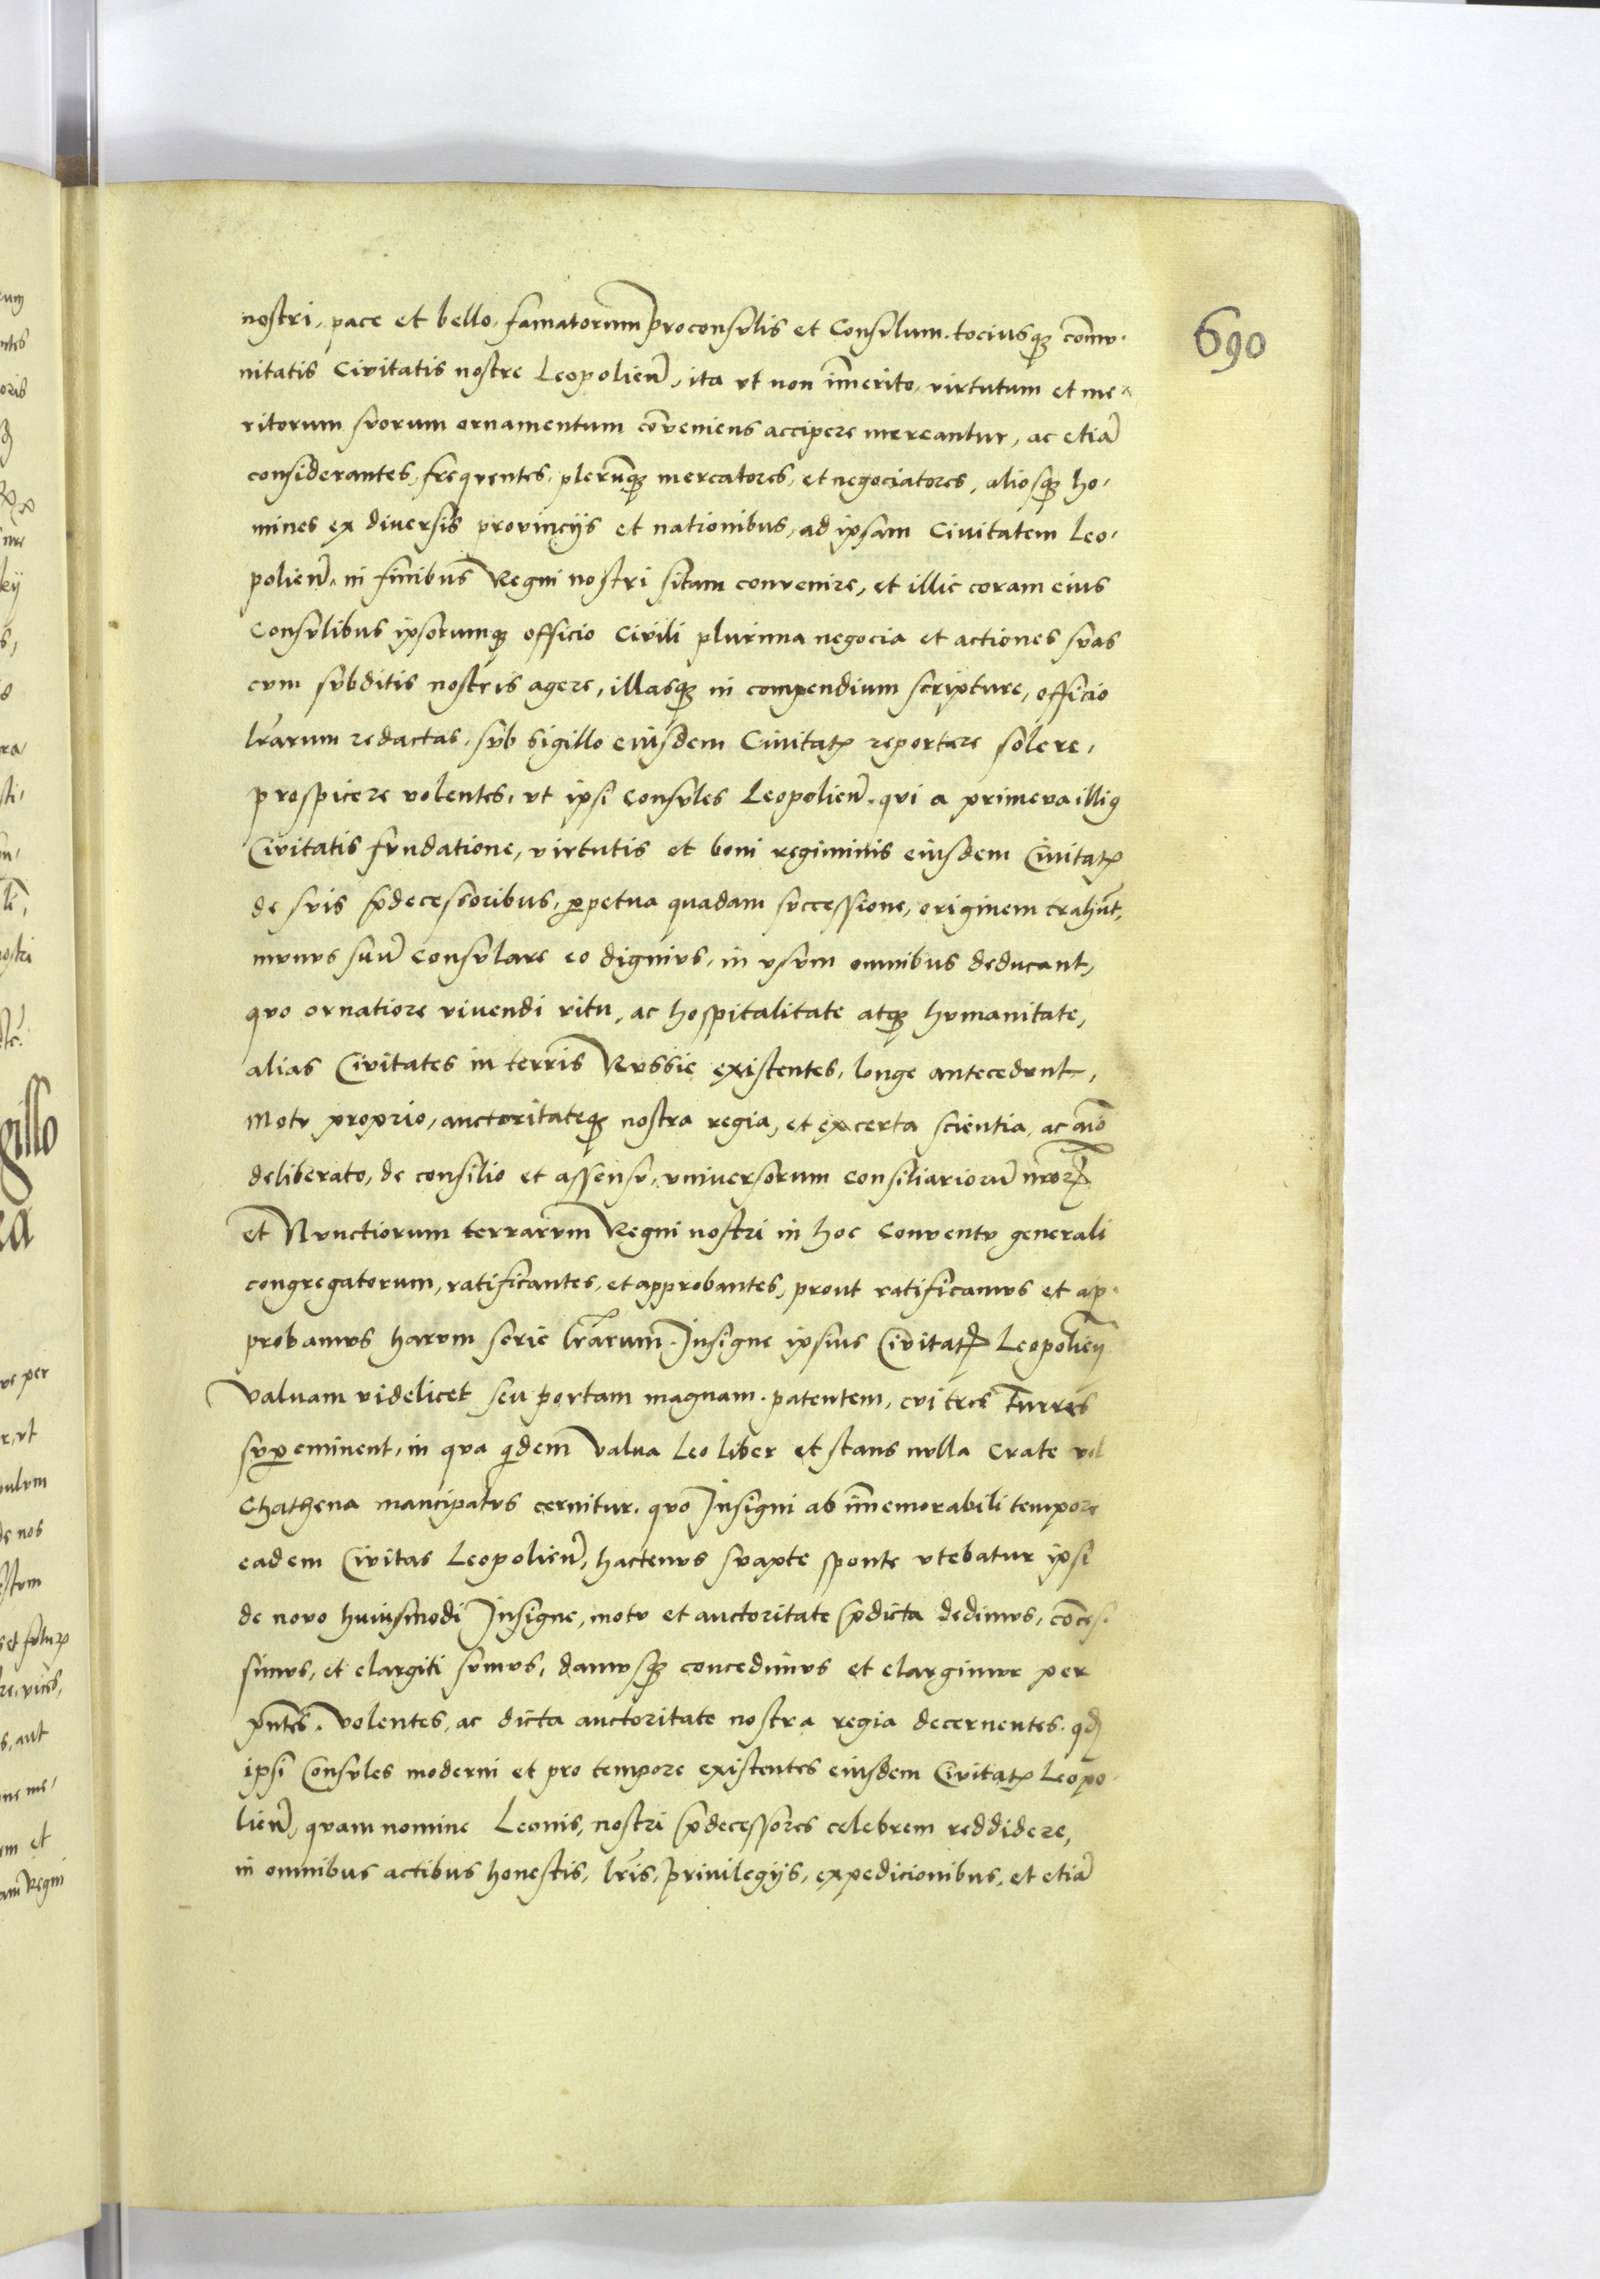 690
nostri, pace et bello, famatorum proconsulis et Consulum, tociusq₃ com̄u-
nitatis Civitatis nostre Leopolien̄, ita vt non im̄erito, virtutum et me-
ritorum suorum ornamentum conveniens accipere mereantur, ac etiā
considerantes, frequentes, plerunq₃ mercatores, et negociatores, aliosq₃ ho-
mines ex diversis provincijs et nationibus, ad ipsam Civitatem Leo-
polien̄, in finibus Regni nostri sitam convenire, et illic coram eius
Consulibus ipsorumq₃ officio Civili plurima negocia et actiones suas
cum subditis nostris agere, illasq₃ in compendium scripture, officio
lr̄arum redactas, sub sigillo eiusdem Civitatꝭ reportare solere,
prospicere volentes, vt ipsi Consules Leopolien̄, qui a primeva illiꝯ
Civitatis fundatione, virtutis et boni regiminis eiusdem Civitatꝭ
de suis p̄decessoribus, ꝑpetua quadam successione, originem trahūt,
munus suū Consulare eo dignius, in vsum omnibus deducant,
quo ornatiore vivendi ritu, ac hospitalitate atq₃ humanitate,
alias Civitates in terris Russie existentes, longe antecedunt,
Motu proprio, auctoritateq₃ nostra regia, et ex certa scientia, ac aīo
deliberato, de consilio et assensu, vniversorum Consiliariorū nr̄oꝝ
et Nunctiorum terrarum Regni nostri in hoc Conventu generali
congregatorum, ratificantes, et approbantes, prout ratificamus et ap-
probamus harum serie lr̄arum. Insigne ipsius Civitatꝭ Leopolien̄
valvam videlicet seu portam magnam, patentem, cui tres Turres
suꝑeminent, in qua q̇dem valva Leo liber et stans nulla Crate vel
Chathena mancipatus cernitur, quo Insigni ab im̄emorabili tempore
eadem Civitas Leopolien̄, hactenus suapte sponte vtebatur ipsi
de novo huiusmodi Insigne, motu et auctoritate p̄dicta dedimus, cōces-
simus, et elargiti sumus, damusq₃ concedimus et elargimur per
pn̄tes. Volentes, ac dicta auctoritate nostra regia decernentes, qđ
ipsi Consules moderni et pro tempore existentes eiusdem Civitatꝭ Leopo-
lien̄, quam nomine Leonis, nostri p̄decessores celebrem reddidere,
in omnibus actibus honestis, lr̄is, privilegijs, expedicionibus, et etiā